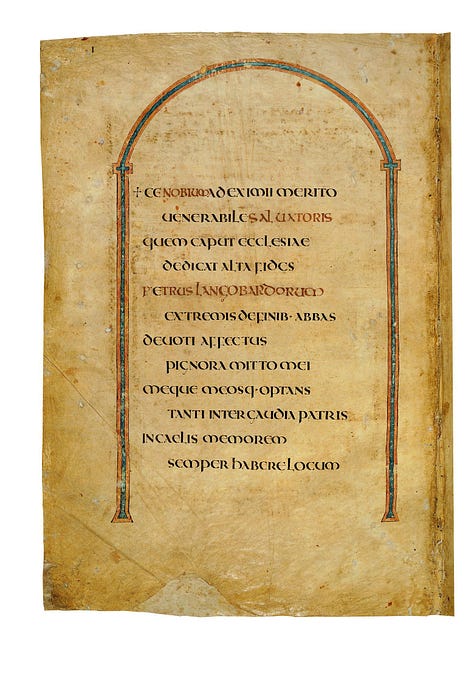 1
✝ CENOBIUM AD EXIMII MERITO
UENERABILE SALUATORIS
QUEM CAPUT ECCLESIAE
DEDICAT ALTA FIDES
PETRUS LANGOBARDORUM
EXTREMIS DE FINIB· ABBAS
DEUOTI AFFECTUS
PIGNORA MITTO MEI
MEQUE MEOSQ· OPTANS
TANTI INTER GAUDIA PATRIS
IN CAELIS MEMOREM
SEMPER HABERE LOCUM